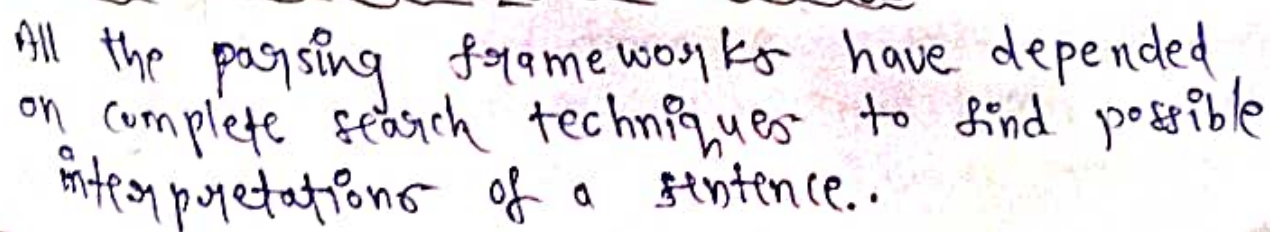 All the parsing frameworks have depended
on complete search techniques to find possible
interpretations of a sentence..